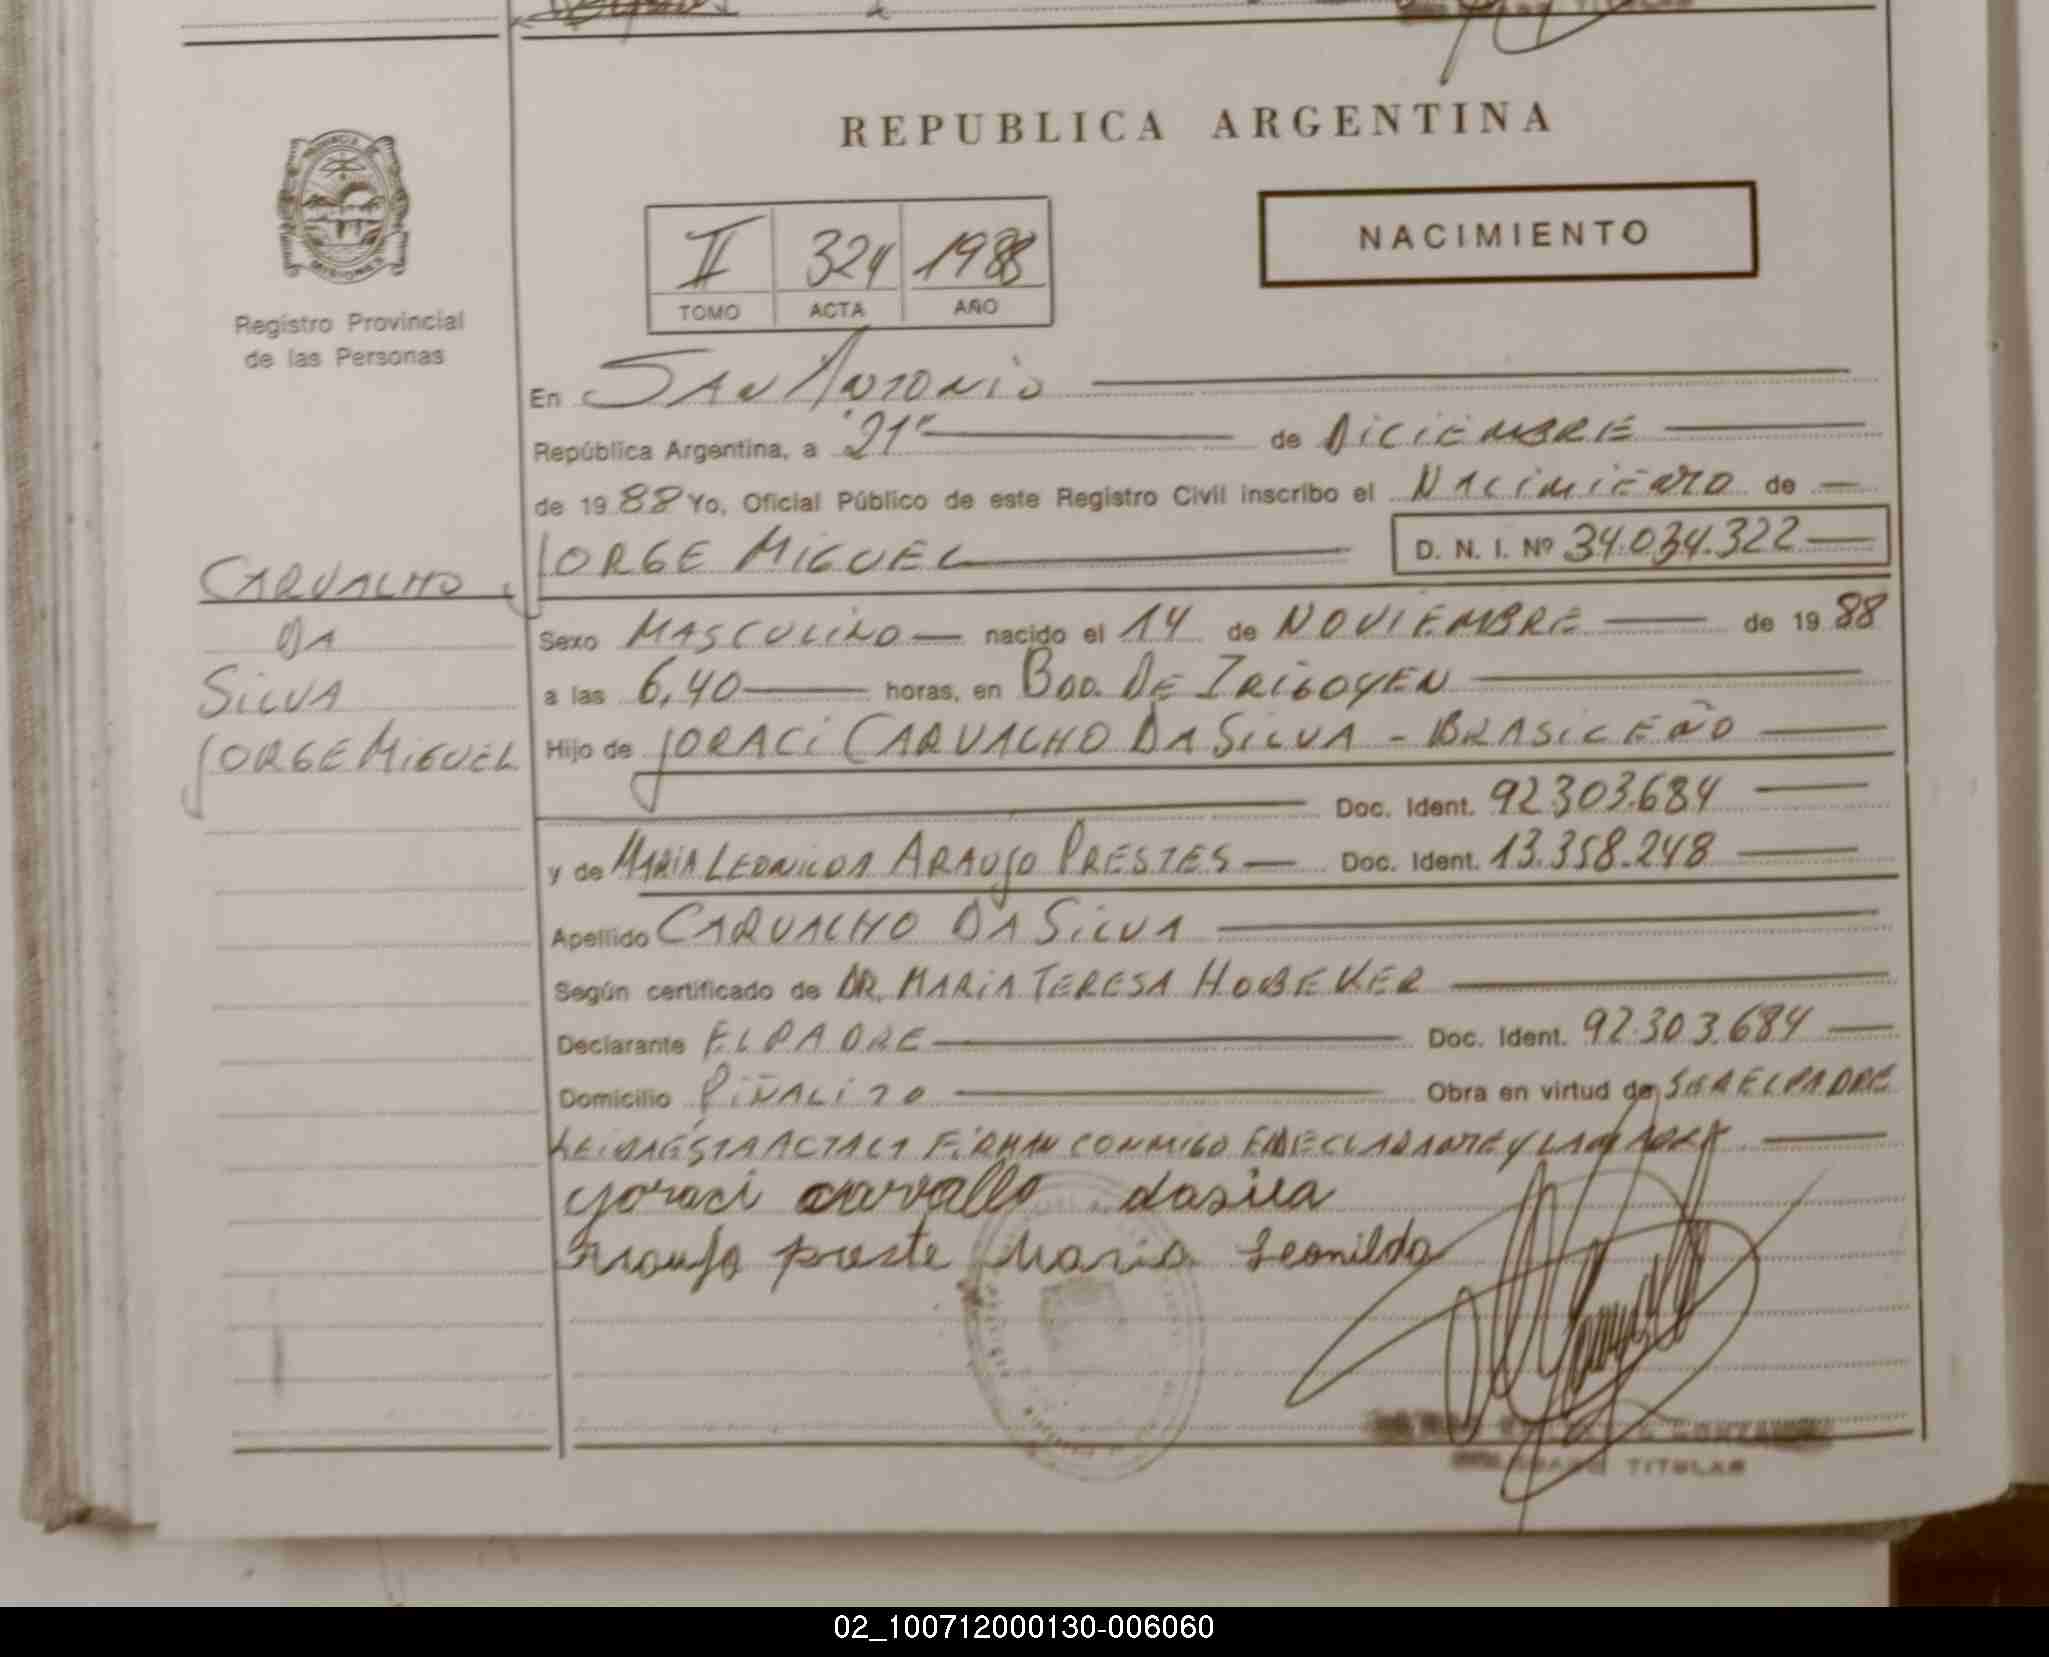 REPUBLICA ARGENTINA
NACIMIENTO
II 324 1988
TOMO ACTA AÑO
Registro Provincial
de las Personas
En SAN ANTONIO
República Argentina, a "21" de DICIEMBRE
de 1988 Yo, Oficial Público de este Registro Civil inscribo el NACIMIENTO de
JORGE MIGUEL D. N. I. Nº 34.034.322
CARVALHO
DA
SILVA
JORGE MIGUEL
Sexo MASCULINO nacido el 14 de NOVIEMBRE de 1988
a las 6,40 horas, en BDO. DE IRIGOYEN
Hijo de JORACI CARVALHO DA SILVA - BRASILEÑO
Doc. Ident. 92.303.684
y de MARIA LEONILDA ARAUJO PRESTES Doc. Ident. 13.358.248
Apellido CARVALHO DA SILVA
Según certificado de DR. MARIA TERESA HOBEKER
Declarante EL PADRE Doc. Ident. 92.303.684
Domicilio PIÑALITO Obra en virtud de SER EL PADRE
LEIDA ESTA ACTA LA FIRMAN CONMIGO EL DECLARANTE Y LA MADRE
yoraci carvallo dasilva
Araujo preste Maria Leonilda
TITULAR
02_100712000130-006060